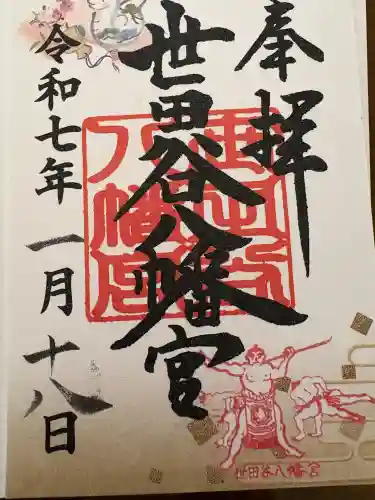 奉拝
世田谷八幡宮
令和七年 一月 十八日
世田谷八幡宮
世田谷八幡宮